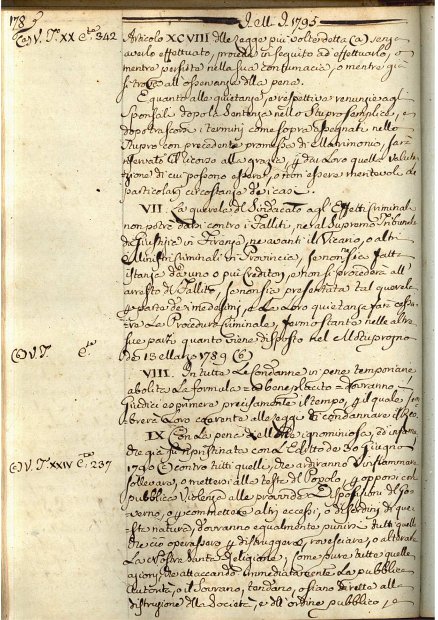 178
Dell. 1795
(a) V. T.o XX C.te 342
Articolo XCVIII della Legge più volte detta (a) senza
averlo effettuato, proceda in seguito ad effettuarlo, o
mentre persiste nella sua contumacia, o mentre già
si trova all'espiazione della pena.
E quanto alle quietanze, e respettive renunzie agli
Sponsali dopo la Sentenza nello Stupro semplice, e
dopo trascorsi i termini come sopra assegnati nello
Stupro con precedente promessa di Matrimonio, sarà
riservato il ricorso alla grazia, per dai Loro quella valuta-
zione di cui possono essere, o non essere meritevoli le
particolari circostanze dei casi.
VII. La querela del Sindacato agl'Effetti Criminali
non potrà darsi contro i Falliti, nè al Supremo Tribunale
di Giustizia in Firenze, nè avanti il Vicario, o altri
Ministri Criminali in Provincia, se non sia fatta
istanza da uno o più Creditori, e non si procederà all'
arresto del Fallito, se non sia presentata tal querela
per parte dei medesimi, e la Loro quietanza farà cessa-
re la Procedura Criminale, fermo stante nelle altre
sue parti quanto viene disposto nel Motuproprio
de 13 Marzo 1789 (b)
(b) V. T. C.te
VIII. In tutte le Condanne in pene temporanee
abolita la formula a beneplacito dovranno i
Giudici esprimere precisamente il tempo, per il quale sem-
brerà Loro coerente alle Leggi di condannare il Reo.
IX. Con la pena di Morte ignominiosa, ed infame
che già fu ripristinata con l'Editto de 30 Giugno
1790 (c) contro tutti quelli, che ardiranno d'infiammare
(c) V. T. XXIV C.te 237
sollevare, o mettersi alla testa del Popolo, per opporsi con
pubblica Violenza alle provvide Disposizioni del Go-
verno, o per commettere altri eccessi, o disordini di que-
sta natura, dovranno egualmente punirsi tutti quelli
che ciò operassero per distruggere, rovesciare, o alterare
La Nostra Santa Religione, come pure tutte quelle
azioni, che attaccando immediatamente la pubblica
Autorità, o il Sovrano, tendano, o siano dirette alla
distruzione della Società, e dell'ordine pubblico, e